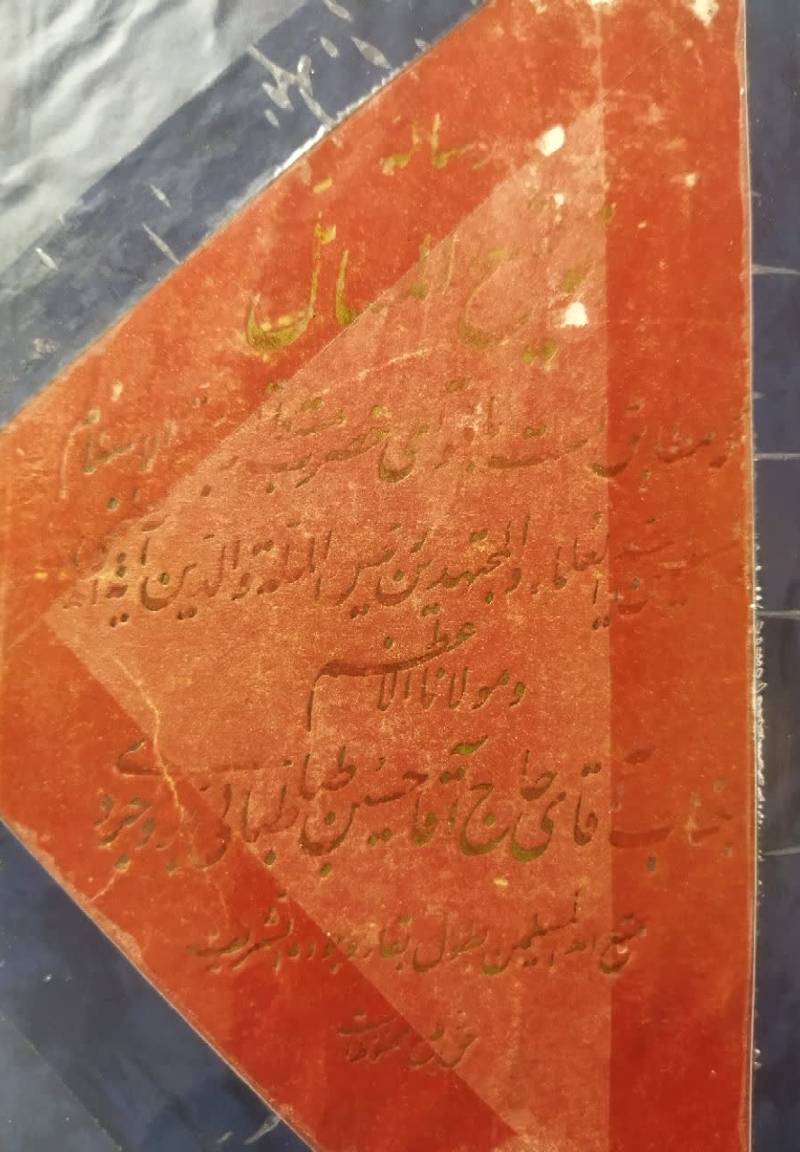 رساله
توضیح المسائل
که مطابق است با فتوای حضرت مستطاب حجة الاسلام
العلماء والمجتهدین رئیس الملة والدین آیة الله
ومولانا الاعظم
جناب آقای حاج آقا حسین طباطبائی بروجردی
متع الله المسلمین بطول بقاء وجوده الشریف